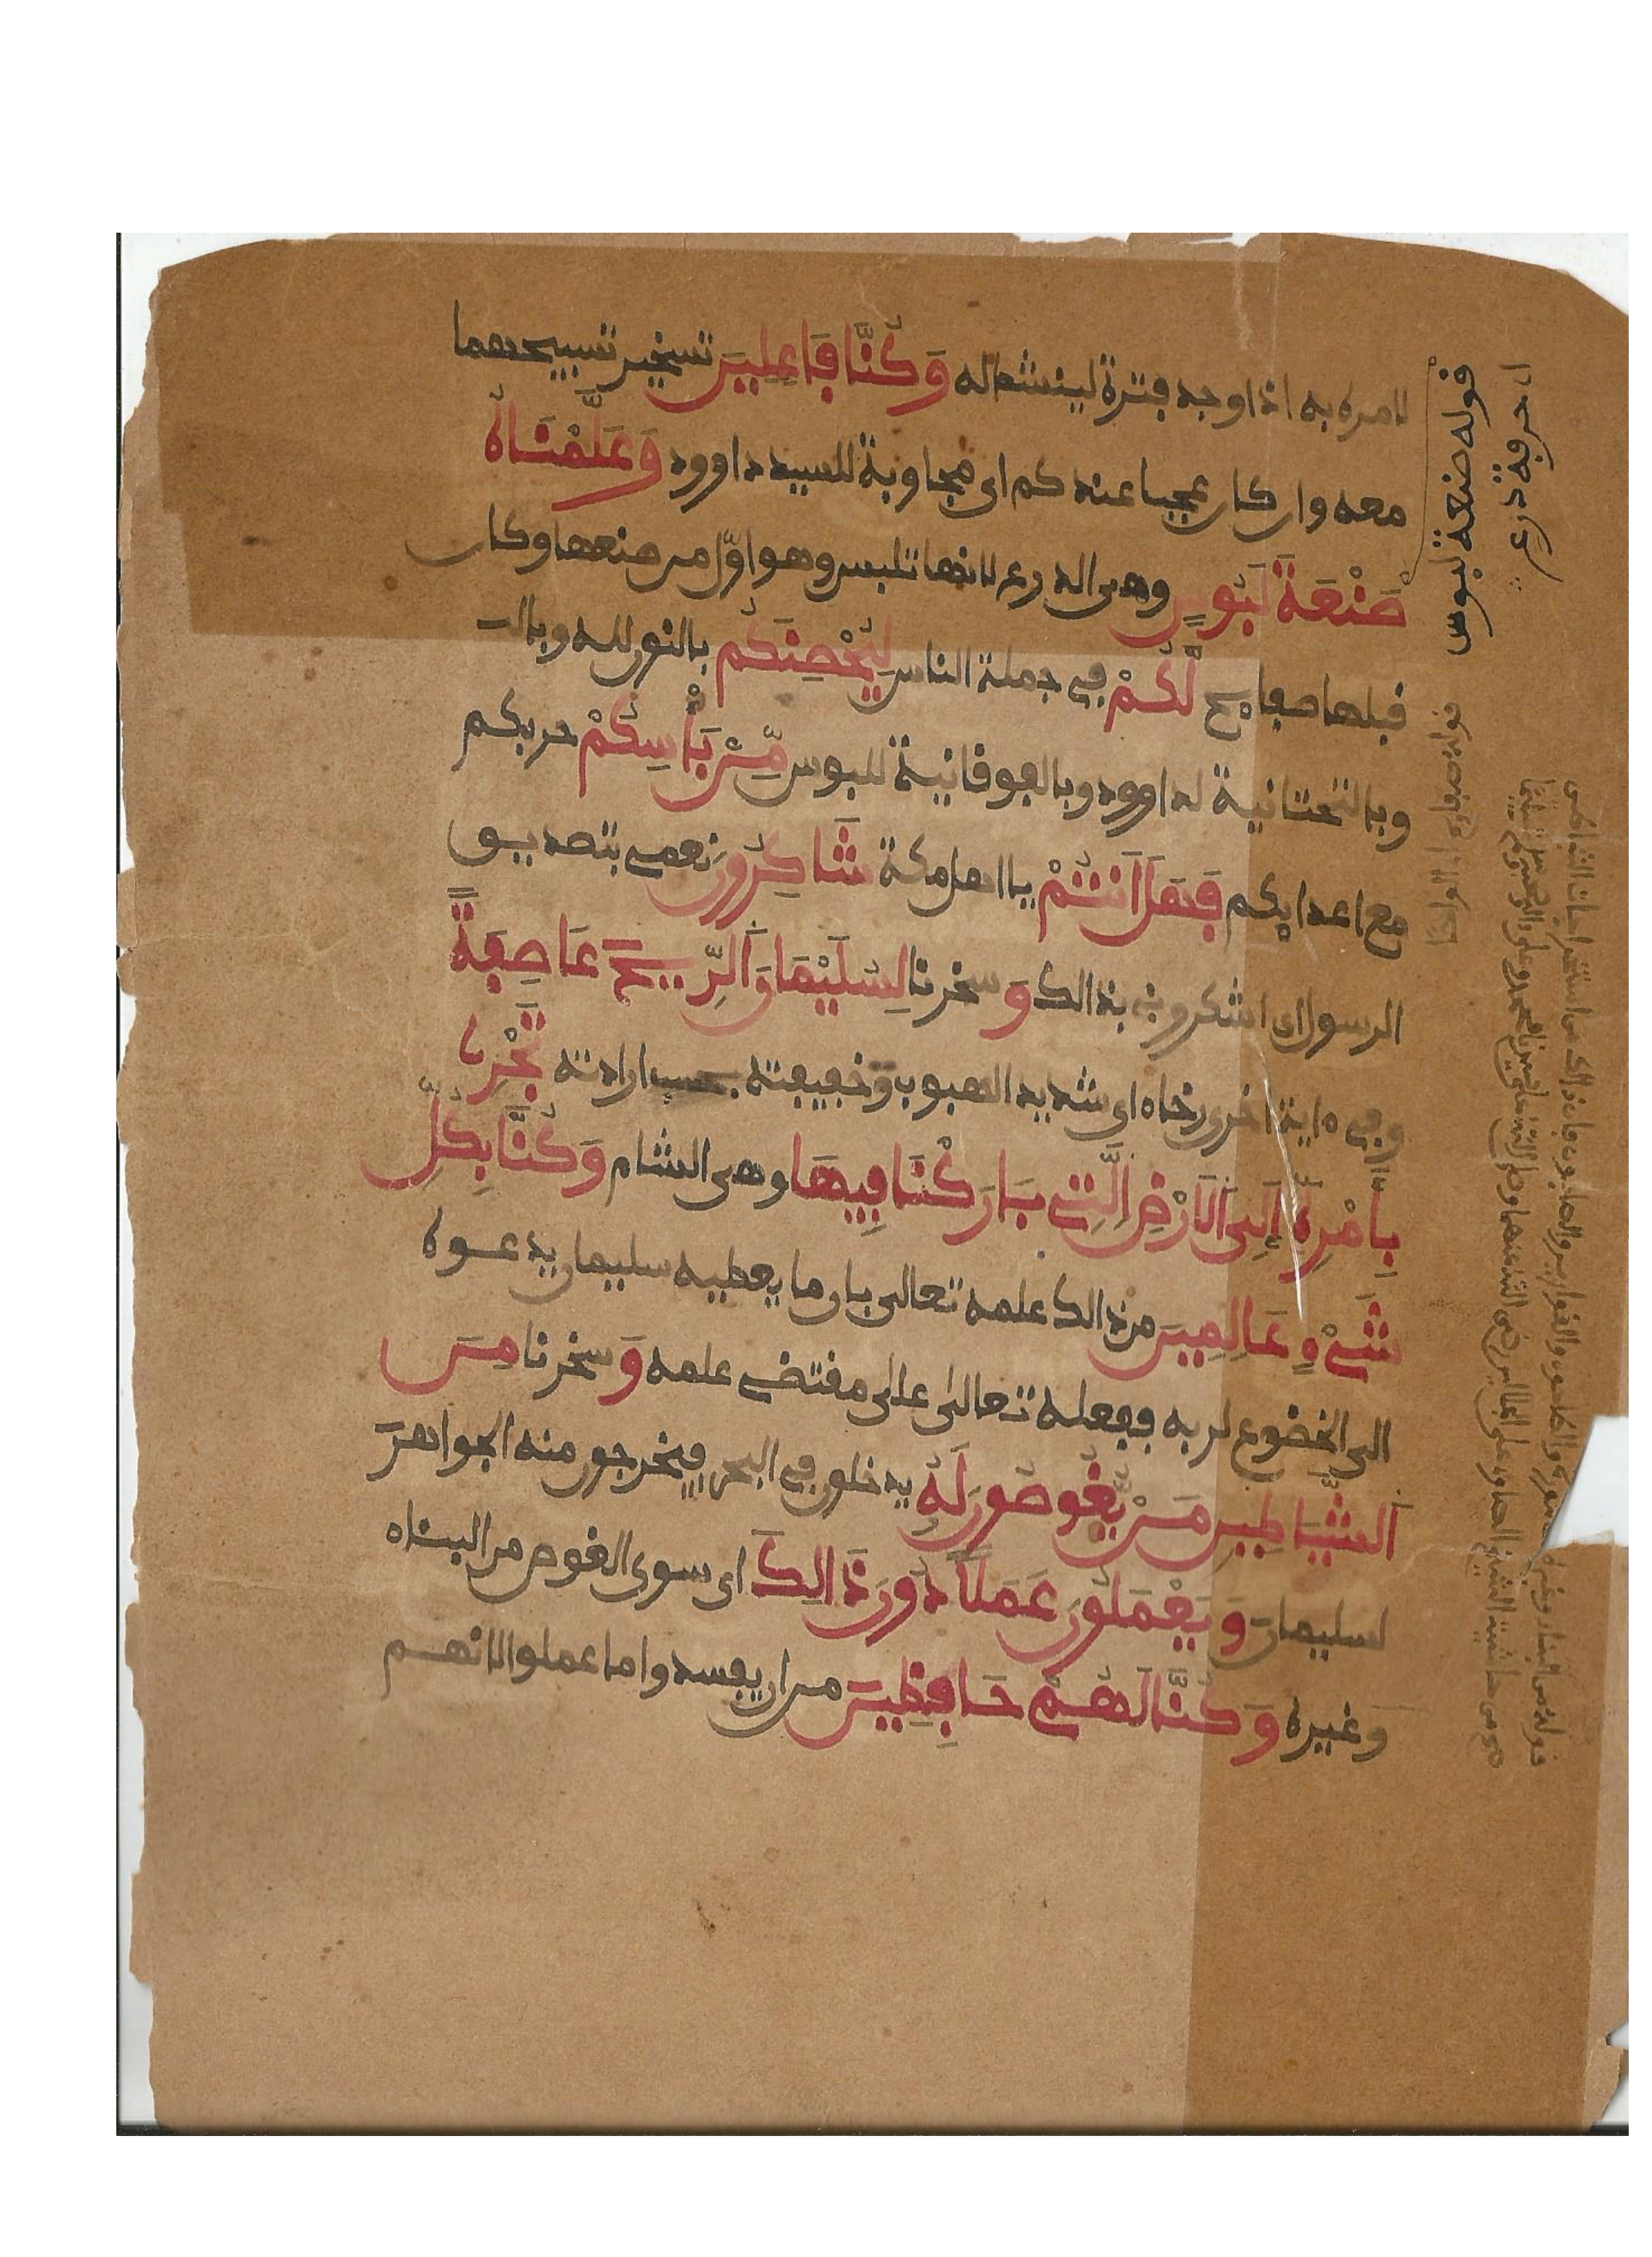 لامره به اذا وجد فترة لينشط له وَكُنَّا فَاعِلِينَ تسخير تسبيحهما
معه وان كان عجبا عندكم اى مجاوبة للسيد داوود وَعَلَّمْنَاهُ
صَنْعَةَ لَبُوسٍ وهى الدرع لانها تلبس وهو اوّل من صنعها وكان
قبلها صفايح لَّكُمْ في جملة الناس لِيُحْصِنَكُم بالنون لله وبالت
وبالتحتانية لداوود وبالفوقانية للبوس مِّنْ بَأْسِكُمْ حربكم
مع اعدايكم فَهَلْ اَنتُمْ يا اهل مكة شَاكِرُونَ نعمي بتصديق
الرسول اى اشكروني بذالك وَ سخرنا لِسُلَيْمَانَ اَلرِّيحَ عَاصِفَةً
وفي ءاية اخرى رخاء اى شديد الهبوب وخفيفته بحسب ارادته تَجْرِى
بِأَمْرِهِ إِلَى اَلَارْضِ اِلَّتِي بَارَكْنَا فِيهَا وهى الشام وَكُنَّا بِكُلِّ
شَيْءٍ عَالِمِينَ من ذالك علمه تعالى بان ما يعطيه سليمان يدعوه
الى الخضوع لربه ففعله تعالى على مقتضى علمه وَ سخرنا مِنَ
اَلشَّيَاطِينِ مَنْ يَّغُوصُونَ لَهُ يدخلون في البحر فيخرجون منه الجواهر
لسليمان وَيَعْمَلُونَ عَمَلًا دُونَ ذَالِكَ اى سوى الغوص من البناء
وغيره وَكُنَّا لَهُمْ حَافِظِينَ من ان يفسدوا ما عملوا لانهم
قوله صنعة لبوس
اى حرفة درع
قوله صفايح